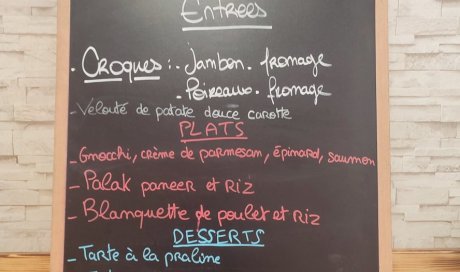 Entrees
. Croques : . Jambon . fromage
. Poireaux . fromage
- Velouté de patate douce carotte
PLATS
- Gnocchi, crème de parmesan, épinard, saumon
- Palak paneer et Riz
- Blanquette de poulet et Riz
DESSERTS
- Tarte à la praline